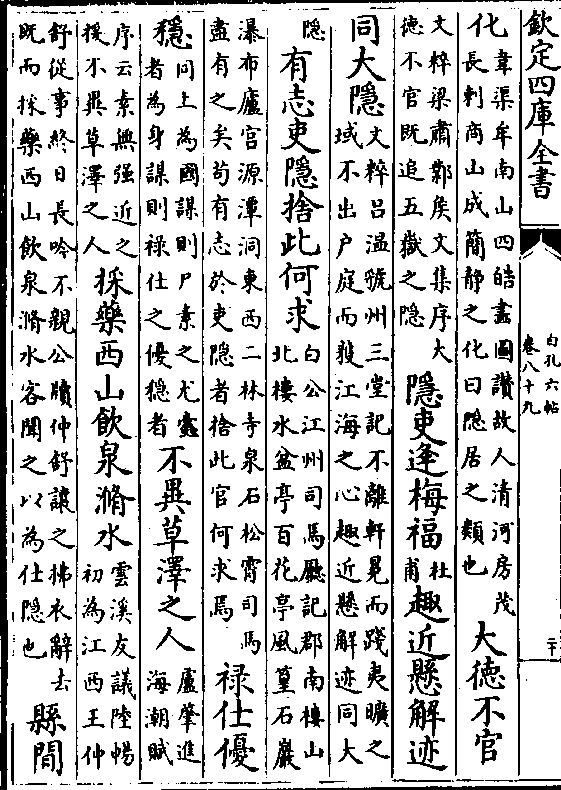 欽定四庫全書
白孔六帖
卷八十九
二十
化韋渠牟南山四皓畫圖讚故人清河房茂長刺商山成簡静之化曰隱居之類也大德不官
文粹梁肅鄭侯文集序大徳不官既追五嶽之隱隱吏逢梅福杜甫趣近懸解迹
同大隱文粹吕温虢州三堂記不離軒冕而踐夷曠之域不出户庭而獲江海之心趣近懸解迹同大
隱有志吏隱捨此何求白公江州司馬廳記郡南樓山北樓水盆亭百花亭風篁石巖
瀑布廬宫源潭洞東西二林寺泉石松霄司馬盡有之矣苟有志於吏隱者捨此官何求焉禄仕優
穏同上為國謀則尸素之尤蠹者為身謀則禄仕之優穏者不異草澤之人盧肇進海潮賦
序云素無强近之援不異草澤之人採藥西山飲泉滫水雲溪友議陸暢初為江西王仲
舒從事終日長吟不親公牘仲舒讓之拂衣辭去既而採藥西山飲泉滫水客聞之以為仕隱也縣閒